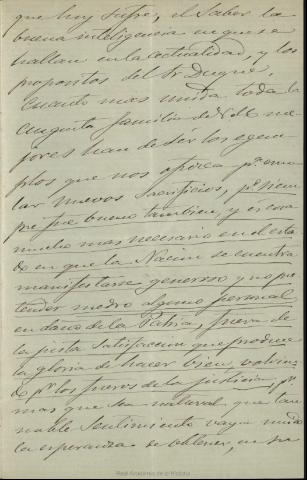 que hoy sufre, el saber la
buena inteligencia en que se
hallan en la actualidad, y los
propositos del Sr Duque.
Cuanto mas unida toda la
Augusta familia de V. M. me
jores han de ser los egem
plos que nos ofrezca pª emu
lar nuevos sacrificios, pª siem
pre fue bueno tambien, y es cosa
mucho mas necesaria en el esta
do en que la Nacion se encuentra
manifestarse generoso y no pre
tender medro alguno personal
en daño de la Patria, fuera de
la justa satisfaccion que produce
la gloria de hacer bien, volvien
do pr los fueros de la justicia, pr
mas que sea natural, que tan
noble sentimiento vaya unido
la esperanza de obtener, en su
Real Academia de la Historia